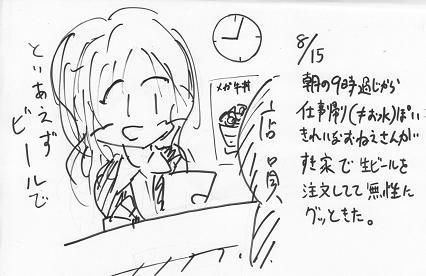 といあえず
ビールで
メガ牛丼
店員
8/15
朝の9時過ぎから
仕事帰り(≠お水)ぽい
きれいなおねえさんが
すき家で生ビールを
注文してて無性に
グッときた。